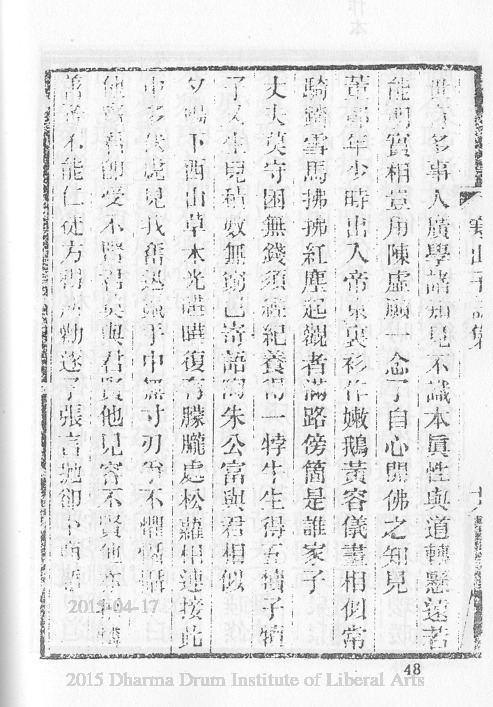 寒山子詩集
世有多事人廣學諸知見不識本眞性與道轉懸遠若
能明實相豈用陳虛願一念了自心開佛之知見
董郎年少時出入帝京裏衫作嫩鵝黃容儀畫相似常
騎踏雪馬拂拂紅塵起觀者滿路傍箇是誰家子
丈夫莫守困無錢須經紀養得一牸牛生得五犢子犢
子又生兒積數無窮已寄語陶朱公富與君相似
夕陽下西山草木光曄曄復有朦朧處松蘿相連接此
中多伏虎見我奮迅鬣手中無寸刃爭不懼懾懾
他賢君即受不賢君莫與君賢他見容不賢他亦拒嘉
善矜不能仁徒方得所勸逐子張言抛卻卜商語
48
2015-04-17
2015 Dharma Drum Institute of Liberal Arts